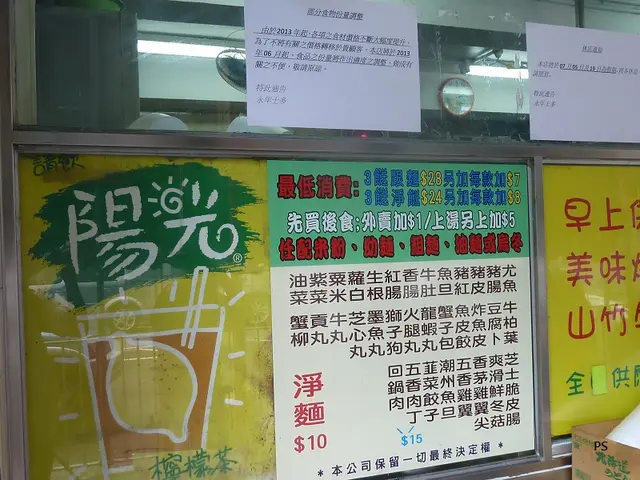 部分食物份量調整
由於2013年起,各項之食材價格不斷大幅度提升,
為了不將有關之價格轉移於貴顧客。本店將於2013
年06月起, 食品之份量將作出適度之調整。做成有
關之不便, 敬請原諒。
特此通告
永年士多
休息通知
特此通告
永年士多
請飲
陽光®
檸檬茶
最低消費: 3餸跟麵$28另加每款加$7
3餸淨餸$24另加每款加$8
先買後食;外賣加$1/上湯另上加$5
任配米粉、幼麵、粗麵、油麵或烏冬
油菜
紫菜
粟米
蘿白
生根
紅腸
香腸
牛肚
魚旦
豬紅
豬皮
豬腸
尤魚
蟹柳
貢丸
牛丸
芝心丸
墨魚丸
獅子狗
火腿丸
龍蝦丸
蟹子包
魚皮餃
炸魚皮
豆腐卜
牛柏葉
回鍋肉
五香肉丁
韮菜餃子
潮州魚旦
五香雞翼
香茅雞翼尖
爽滑鮮冬菇
芝士脆皮腸
淨麵
$10
$15
*本公司保留一切最終決定權*
早上
美味
山竹
全 供
PS